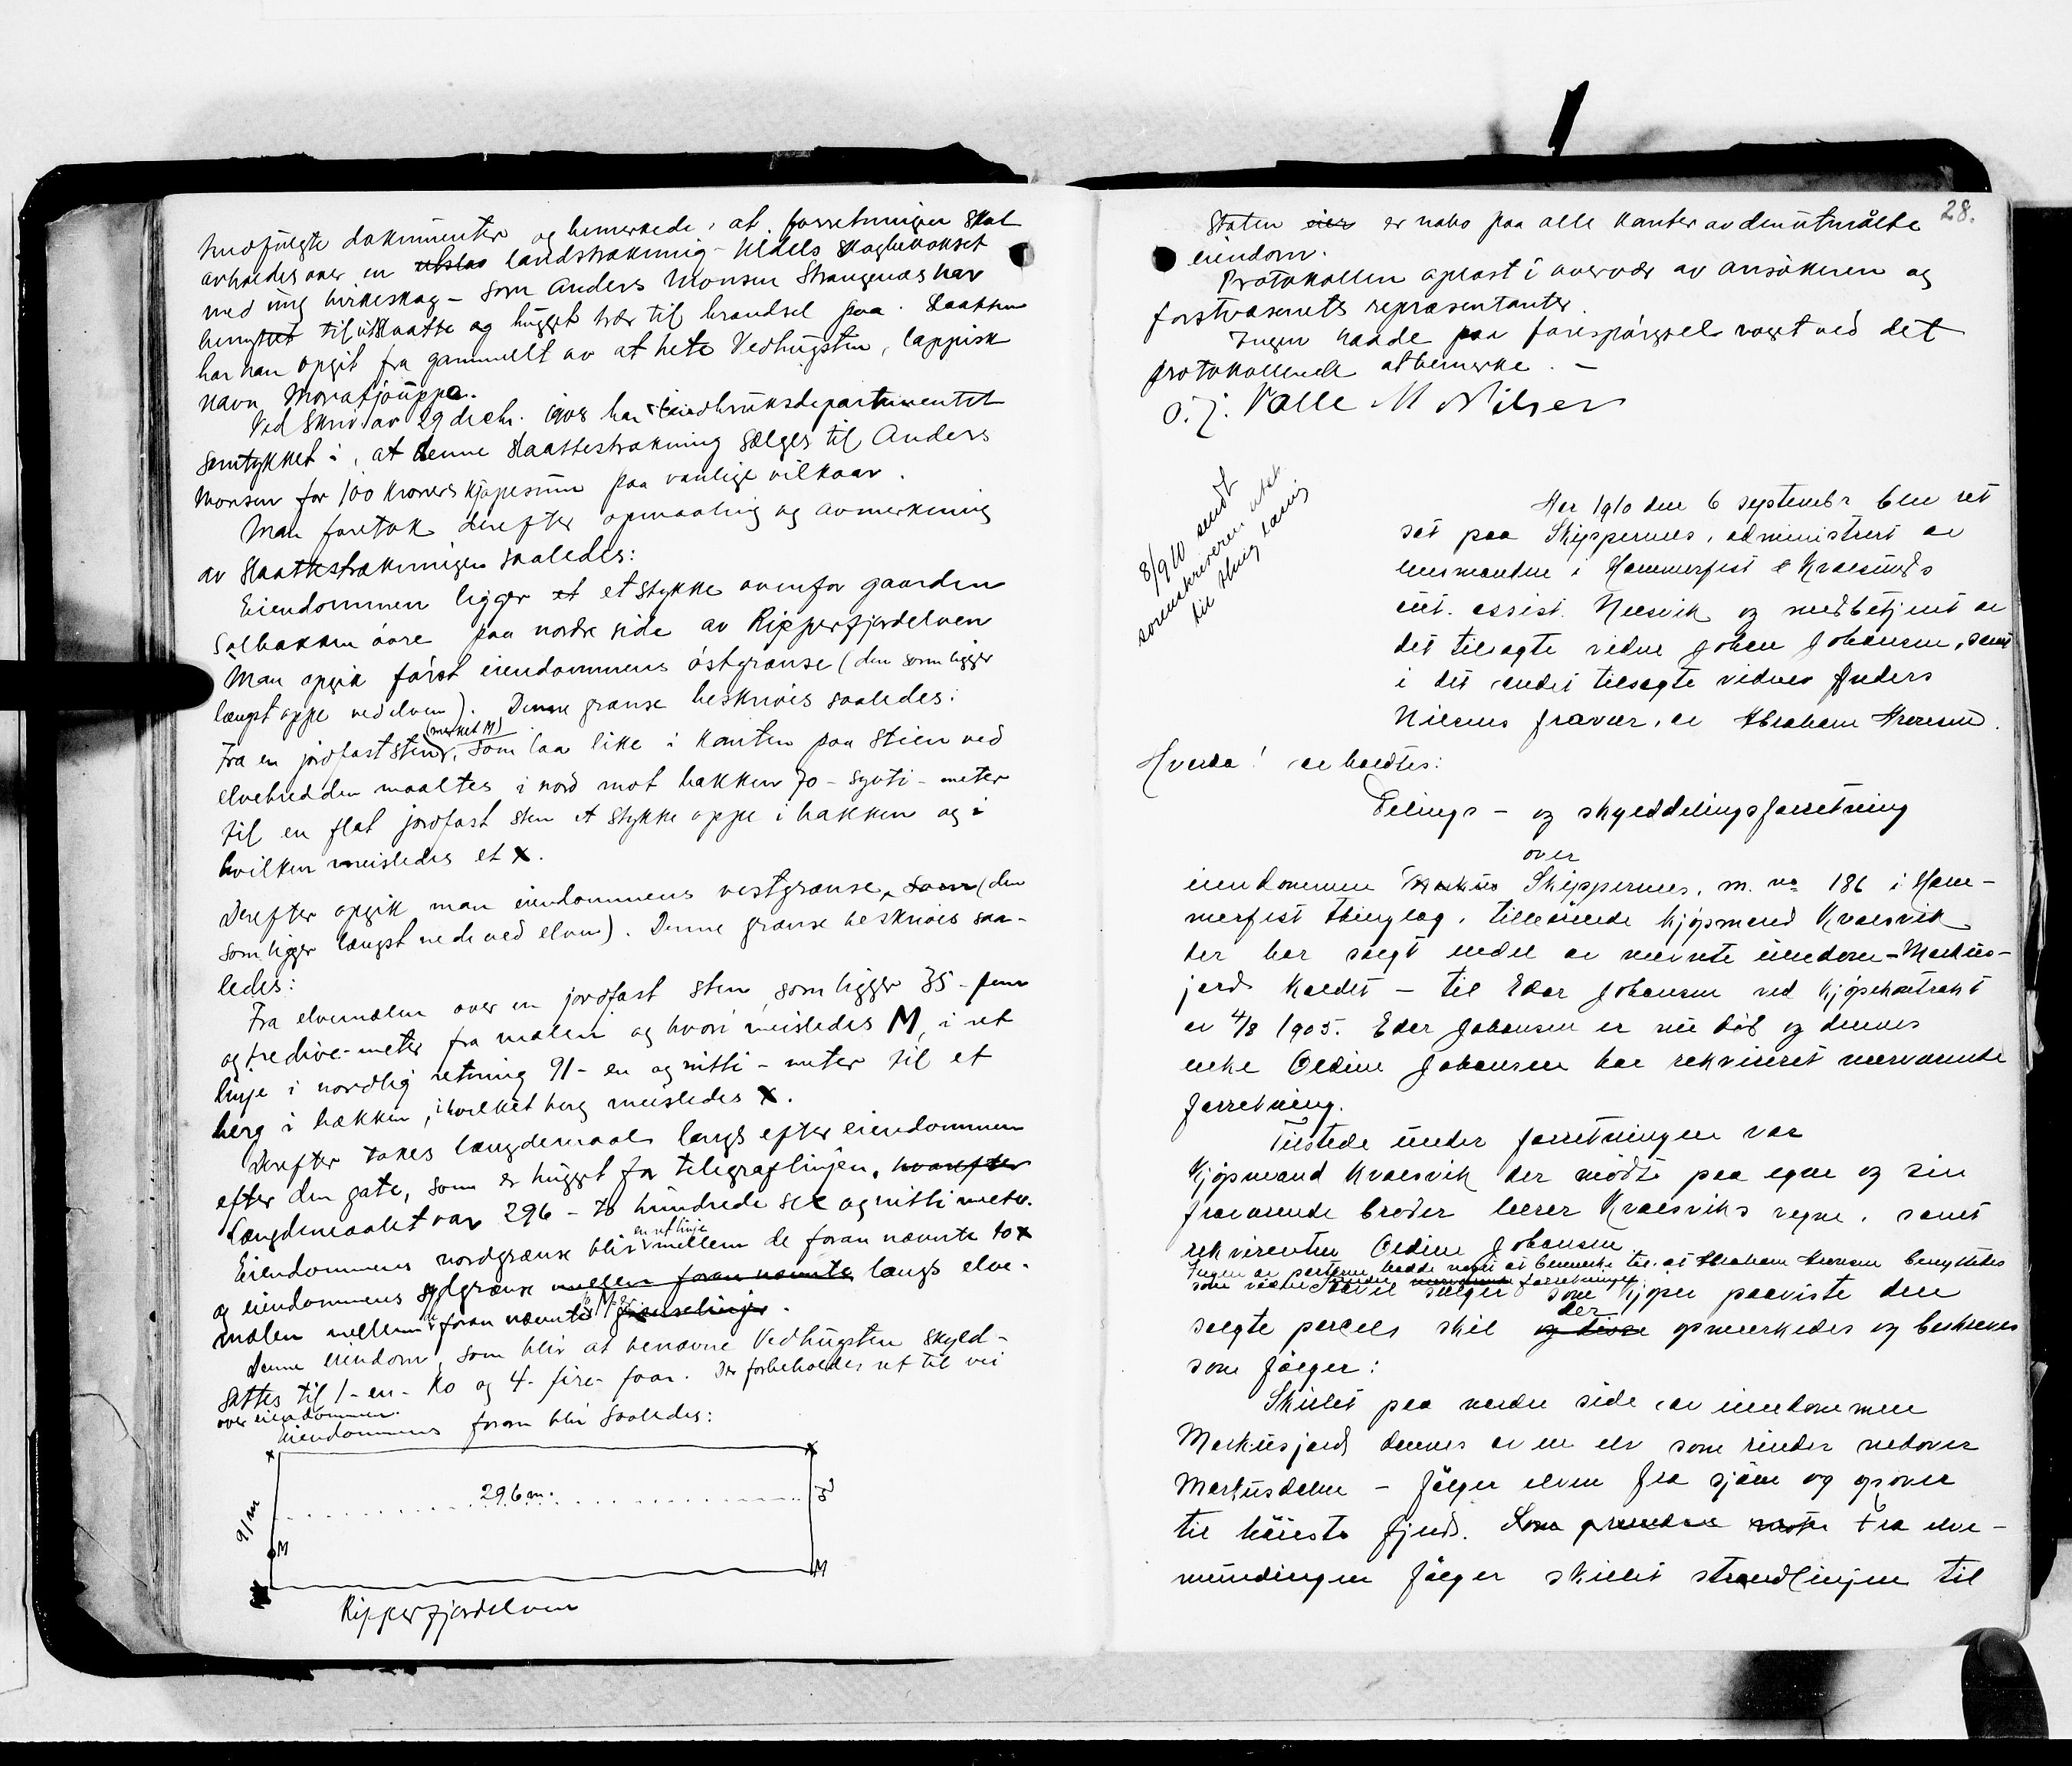 medfulgte dokumenter og bemerkede, at forretningen skal
avholdes over en utslaa landstrækning - tildels skogbevokset
med ung birkeskog - som Anders Monsen Strangenæs har
benyttet til utslaatte og hugget trær til brandsel paa. Slaatten
har han opgit fra gammelt av at hete Vedhugsten, lappisk
navn Moratjouppa.
Ved skriv av 29 decbr. 1908 har Landbruksdepartementet
samtykket i, at denne slaattestrækning sælges til Anders
Monsen for 100 kroners kjøpesum paa vanlige vilkaar.
Man foretok derefter opmaaling og avmerkning
av slaattestrækningen saaledes:
Eiendommen ligger et et stykke ovenfor gaarden
Solbakken övre paa nordre side av Ripperfjordelven
Man opgik först eiendommens östgrænse (den som ligger
længst oppe ved elven). Denne grænse beskrives saaledes:
(merket M)
Fra en jordfast sten, som laa like i kanten paa stien ved
elvebredden maaltes i nord mot bakken 70 - sytti - meter
til en flat jordfast sten et stykke oppe i bakken og i
hvilken meisledes et x.
Derefter opgik man eiendommens vestgrænse, som (den
som ligger længst nede ved elven). Denne grænse beskrives saa-
ledes:
Fra elvemælen over en jordfast sten, som ligger 35 - fem
og tredive - meter fra mælen og hvori meisledes M, i ret
linje i nordlig retning 91 - en og nitti - meter til et
berg i bakken, i hvilket berg meisledes x.
Derefter tokes længdemaal langs efter eiendommen
efter den gate, som er hugget for telegraflinjen, hvorefter
Længdemaalet var 296 - to hundrede sex og nitti meter.
en ret linje
Eiendommens nordgrænse blir mellem de foran nævnte to x
og eiendommens sydgrænse mellem foran nævnte langs elve-
mælen mellem de foran nævnte to M-er grænselinjer.
Denne eiendom, som blir at benævne Vedhugsten skyld-
sattes til 1 - en - ko og 4 - fire - faar. Der forbeholdes ret til vei
over eiendommen.
Eiendommens form blir saaledes:
x x
296 m.
91 m
M
M
Ripperfjordelven
28.
Staten eier er nabo paa alle kanter av den utmålte
eiendom.
Protokollen oplæst i overvær av ansökeren og
forstvæsenets repræsentanter.
Ingen hadde paa forespörgsel noget ved det
protokollerede at bemerke. -
O. J. Valle M Nilsen
8/9 10 sendt
sorenskriveren utskr
til tingl
Aar 1910 den 6 septembr blev ret
sat paa Skippernes, administrert av
lensmanden i Hammerfest & Kvalsunds
assist. Næsvik og medbetjent av
det tilsagte vidne Johan Johansen, samt
i det andet tilsagte vidnes Anders
Nilsens fravær, av Abraham
Hvorda! avholdtes:
Delings - og skylddelingsforretning
over
eiendommen Markus Skippernes, m. no 186 i Ham-
merfest thinglag, tilhörende kjöpmand Kvalsvik
der har solgt endel av nævnte eiendom - Markus-
jord kaldet - til Edor Johansen ved kjöpekontrakt
av 4/8 1905. Edor Johansen er nu död og dennes
enke Oldine Johansen har rekvireret nærværende
forretning.
Tilstede under forretningen var
Kjöpmand Kvalsvik der mödte paa egne og sin
fraværende broder lærer Kvalsviks vegne, samt
rekvirenten Oldine Johansen
Ingen av parterne hadde noget at bemerke til, at Abraham benyttedes
som vidne under nærværende forretningen.
Saavel sælger som kjöper paaviste den
solgte parcels skil og disse der opmerkedes og beskreves
som fölger:
Skillet paa nordre side av eiendommen
Markusjord dannes av en elv som rinder nedover
Markusdalen - fölger elven fra sjöen og opover
til höieste fjeld. Som Fra elve-
mundingen fölger skillet strandlinjen til